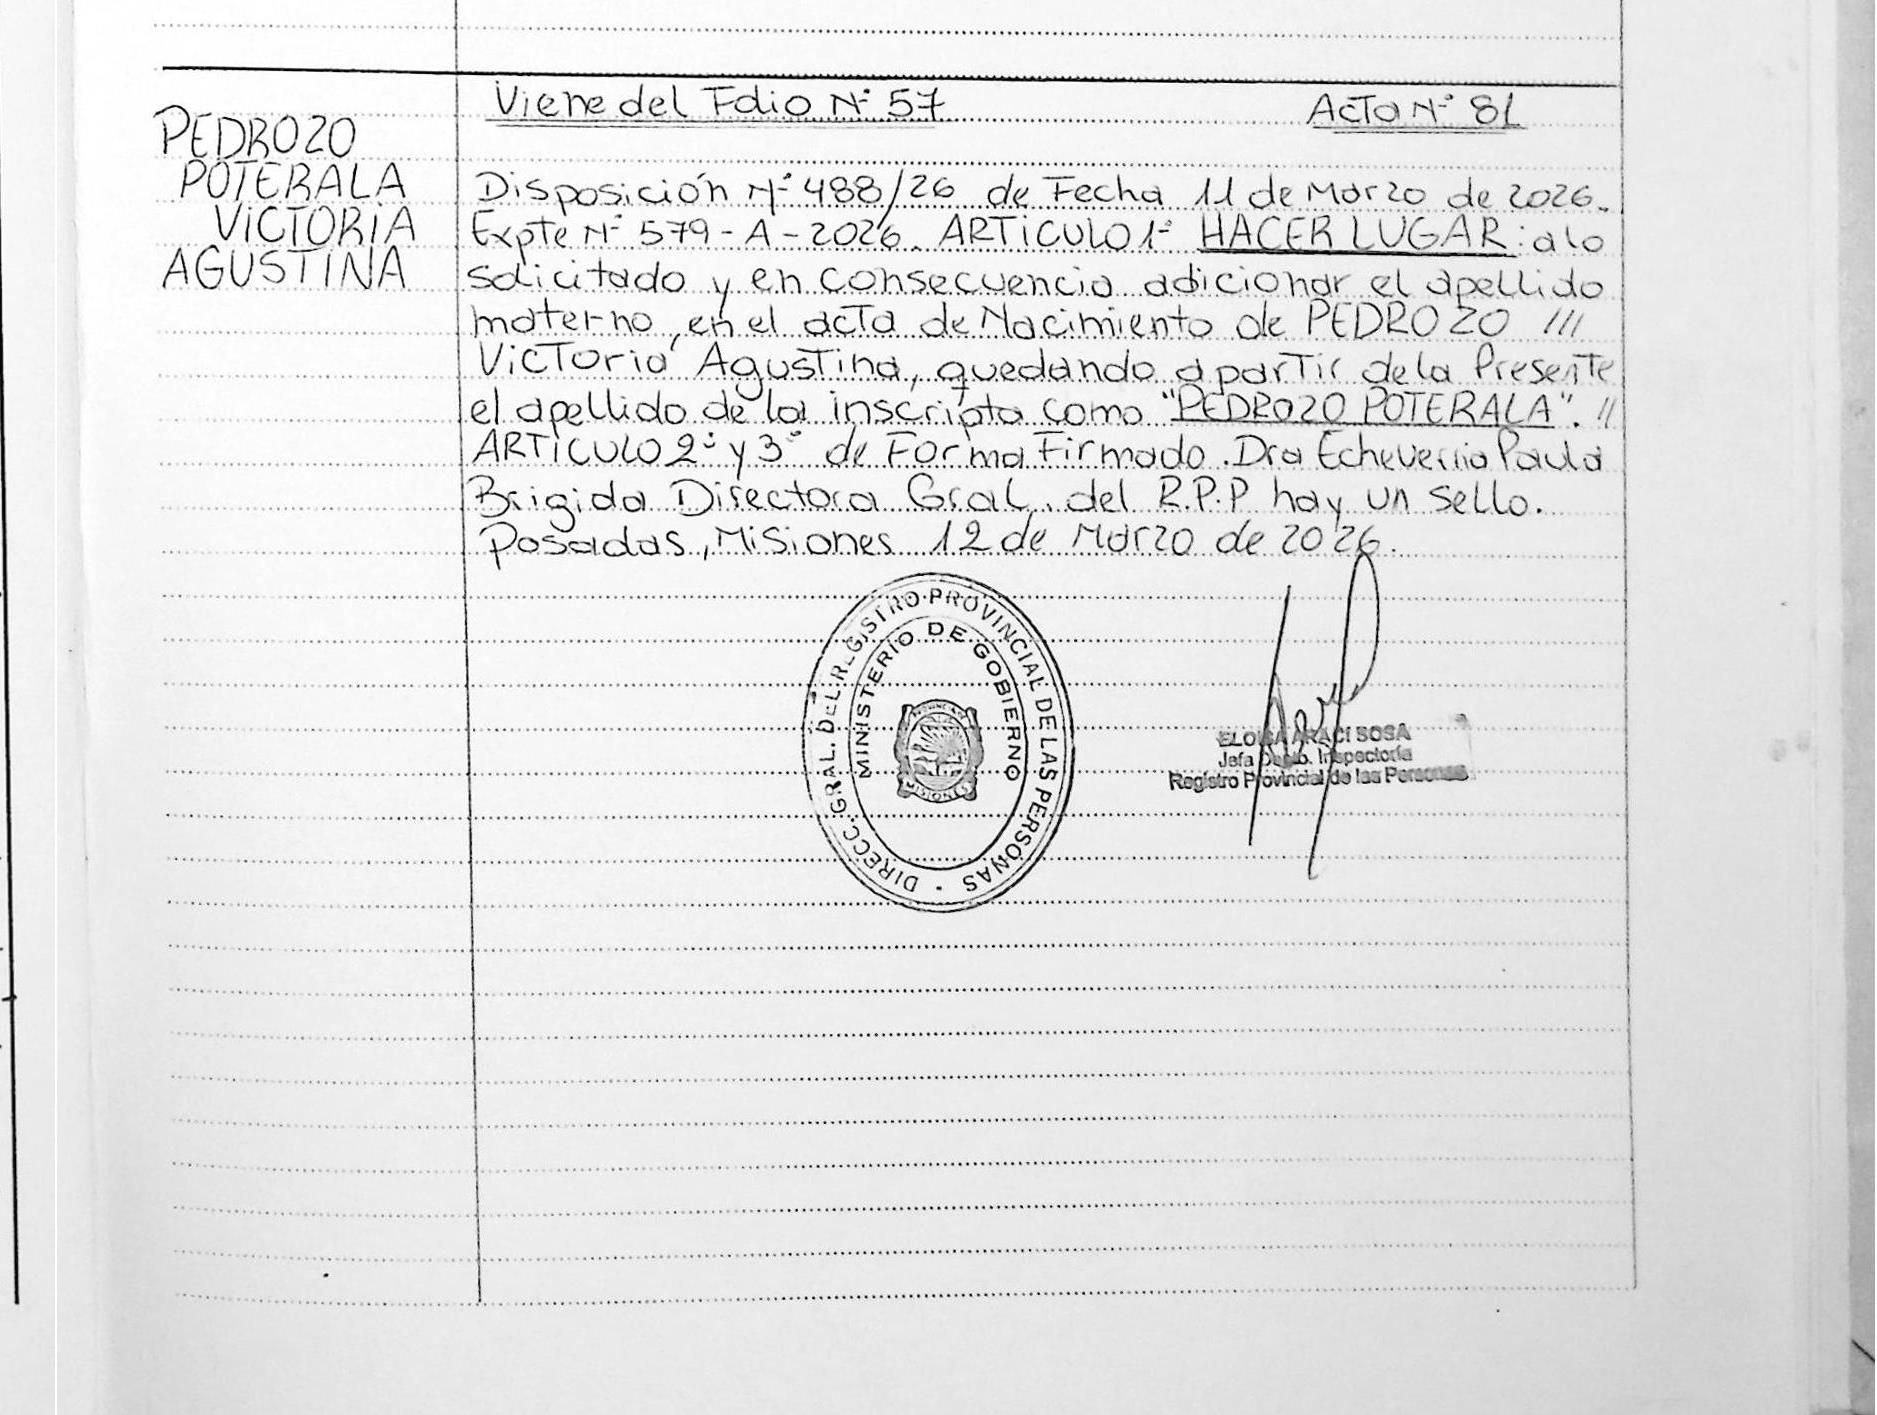 Viene del Folio N° 57
Acta N° 81
PEDROZO
POTERALA
VICTORIA
AGUSTINA
Disposición N° 488/26 de Fecha 11 de Marzo de 2026.
Expte N° 579-A-2026. ARTICULO 1° HACER LUGAR: a lo
solicitado y en consecuencia adicionar el apellido
materno, en el acta de Nacimiento de PEDROZO ///
Victoria Agustina, quedando a partir de la Presente
el apellido de la inscripta como "PEDROZO POTERALA". //
ARTICULO 2° y 3° de Forma Firmado. Dra Echeverria Paula
Brigida Directora Gral. del R.P.P hay un sello.
Posadas, Misiones 12 de Marzo de 2026.
DIRECC. GRAL. DEL REGISTRO PROVINCIAL DE LAS PERSONAS
MINISTERIO DE GOBIERNO
PROVINCIA DE
MISIONES
ELOISA ARACI SOSA
Jefa Dpto. Inspectoría
Registro Provincial de las Personas